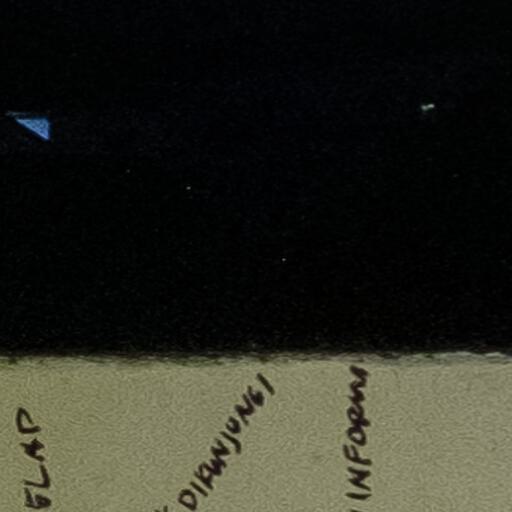 ELAP
DIKUNJUNGI
INFORM